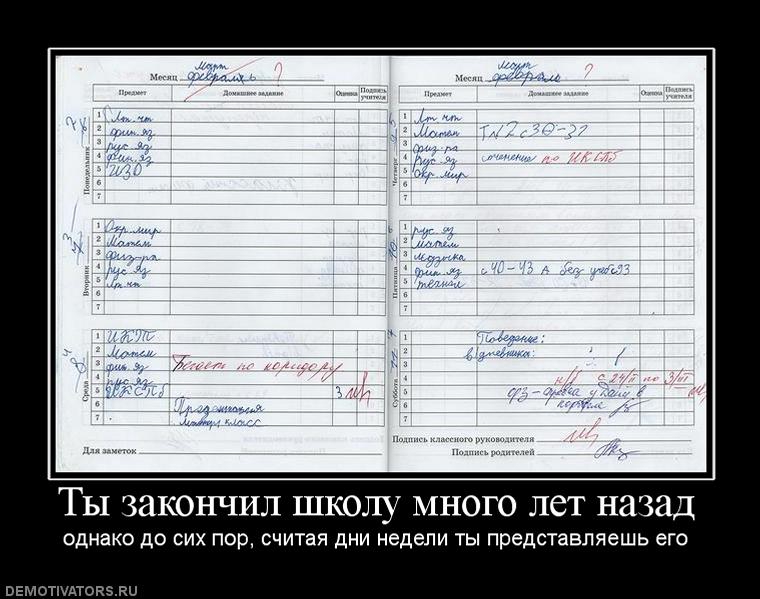 март
Месяц февраль ?
Предмет Домашнее задание Оценка Подпись учителя
Понедельник
1 Лит. чт
2 фин. яз
3 рус. яз
4 фин. яз
5 ИЗО
6
7
Вторник
1 Окр. мир
2 Матем
3 физ-ра
4 рус. яз
5 Лит. чт
6
7
Среда
1 ИКТ
2 Матем
3 фин. яз Бегает по коридору
4 рус. яз
5 ИКСПб 3
6 Презентация
7 класс
Для заметок
март
Месяц февраль ?
Предмет Домашнее задание Оценка Подпись учителя
Четверг
1 Лит. чт
2 Матем
3 физ-ра
4 Рус. яз сочинение по ИКСПб
5 Окр. мир
6
7
Пятница
1 рус. яз
2 матем
3 музыка
4 фин. яз с 40-43 А без
5
6
7
Суббота
1 Поведение:
2 в дневника:
3
4 н/п с 24/II по 3/III
5 в
6
7
Подпись классного руководителя
Подпись родителей
Ты закончил школу много лет назад
однако до сих пор, считая дни недели ты представляешь его
DEMOTIVATORS.RU